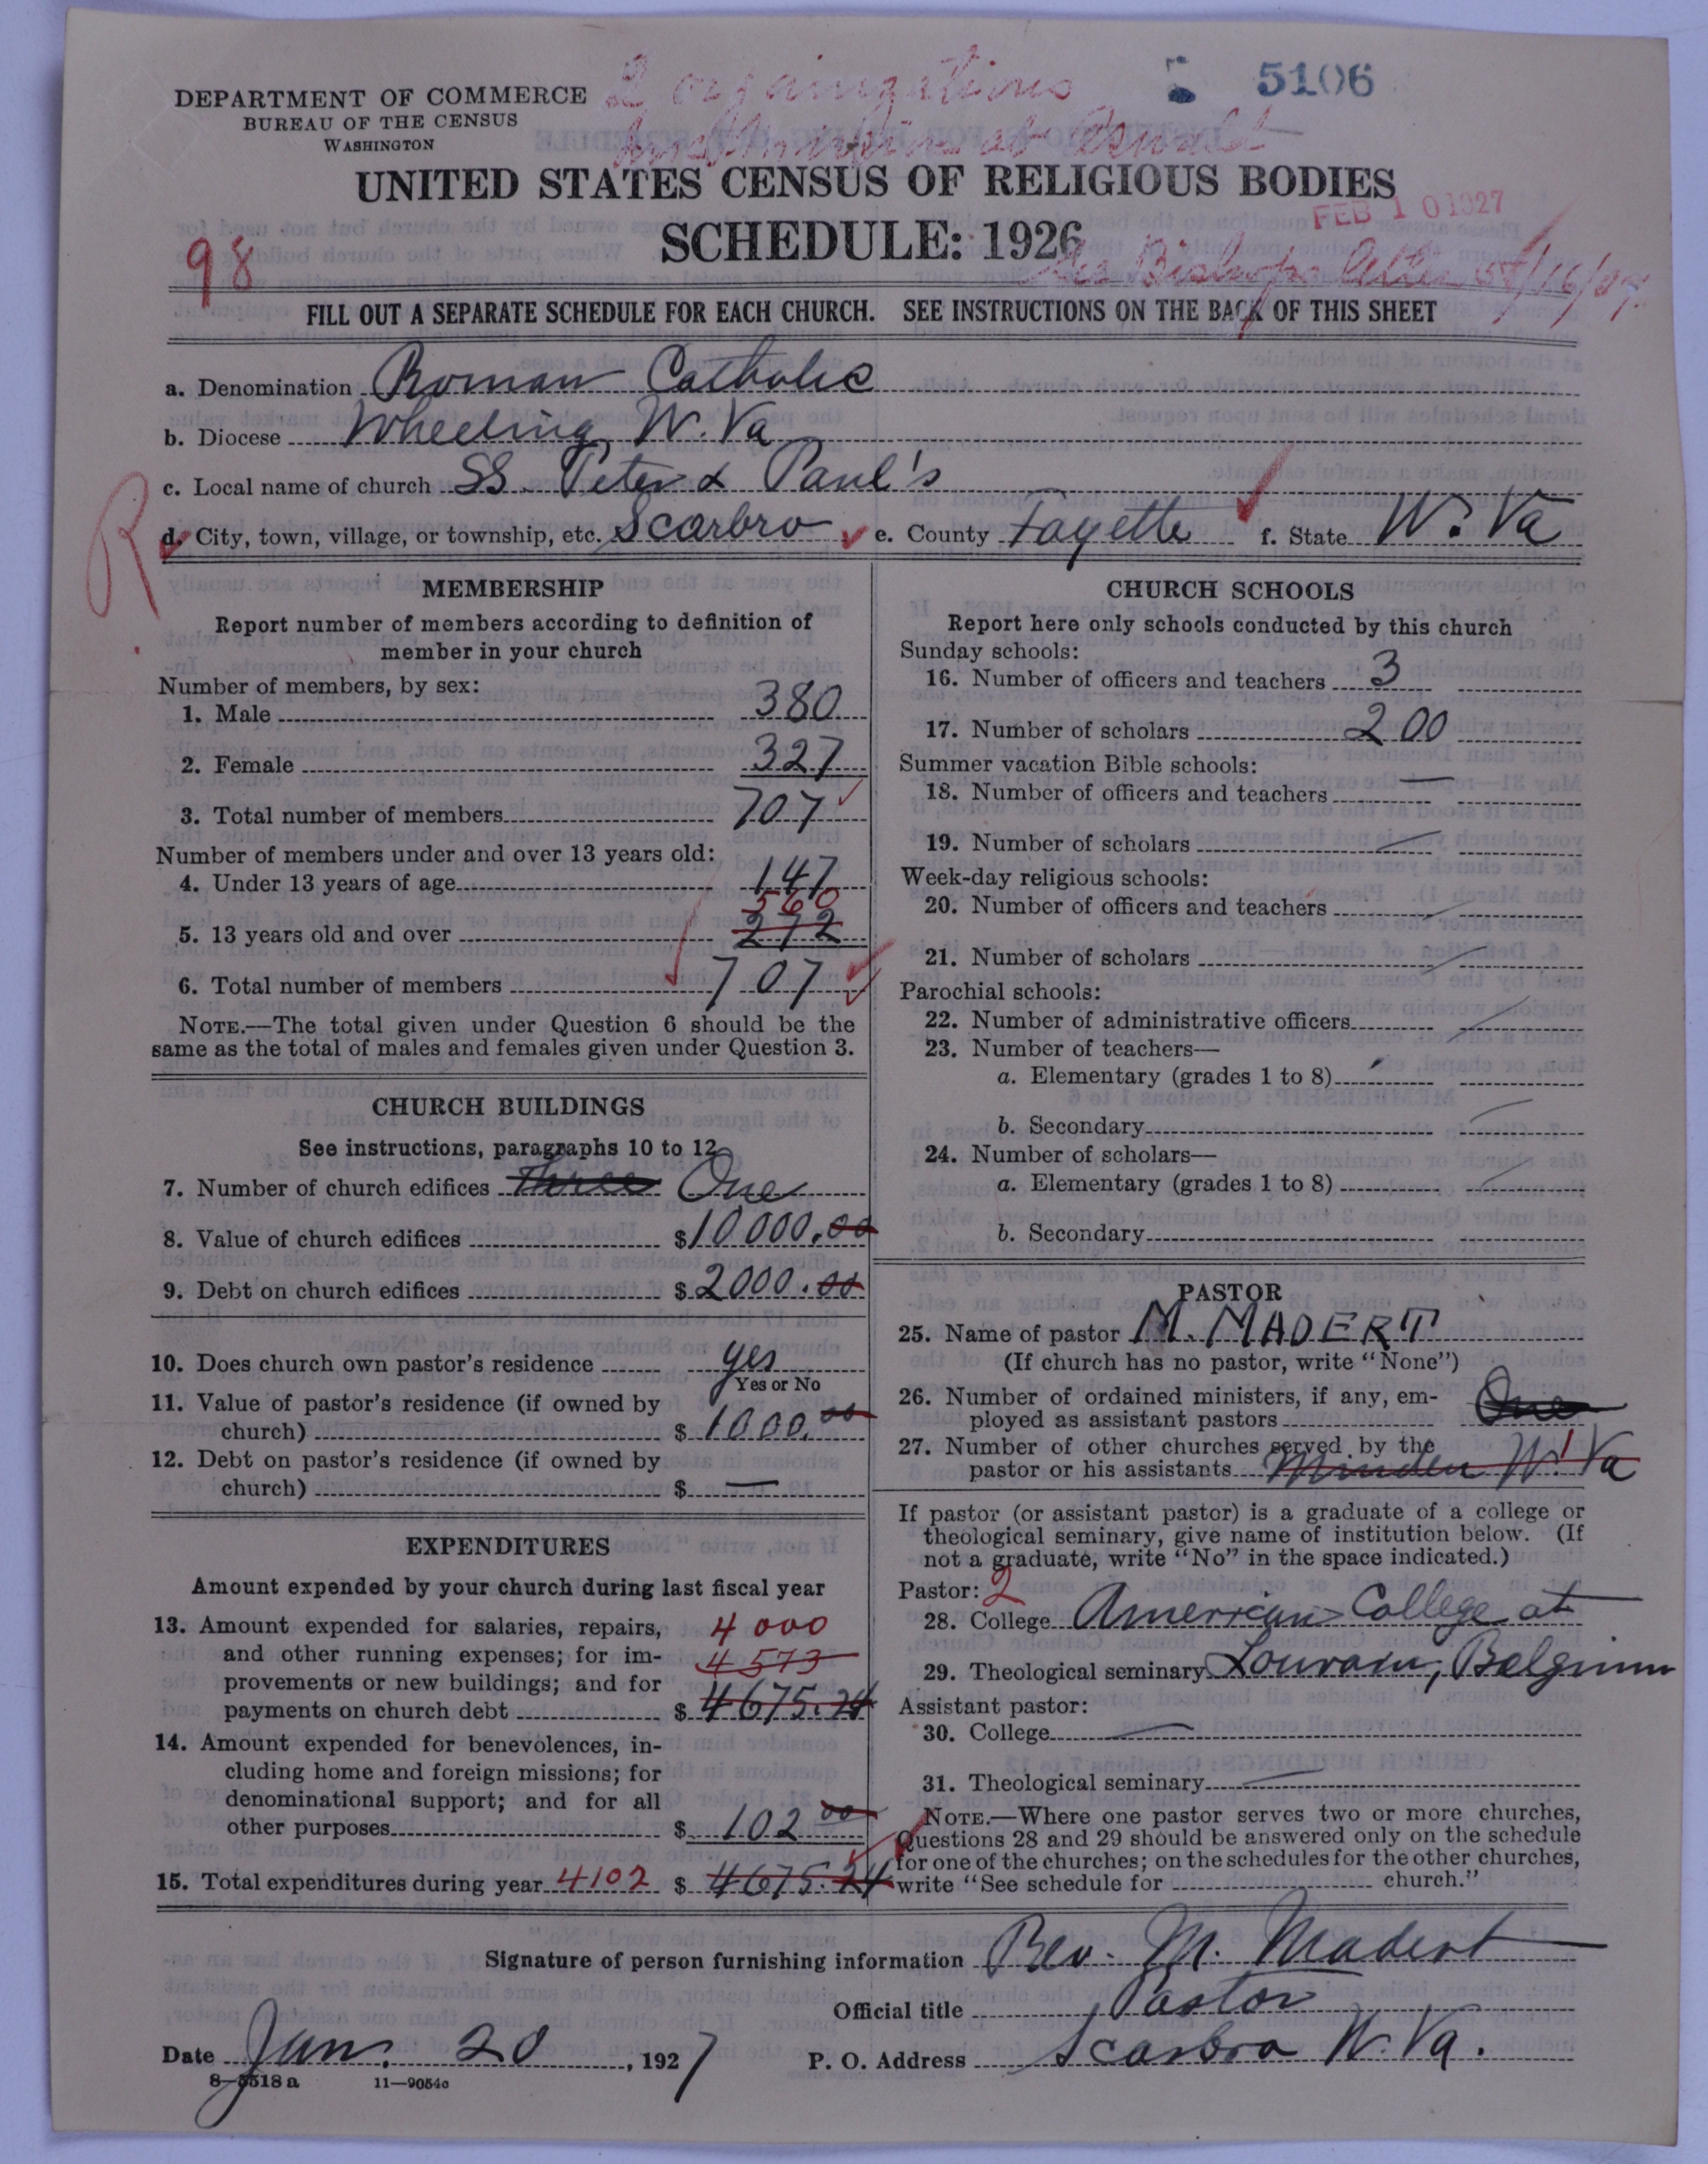 2 organizations
5106
DEPARTMENT OF COMMERCE
BUREAU OF THE CENSUS
WASHINGTON
UNITED STATES CENSUS OF RELIGIOUS BODIES
SCHEDULE: 1926
FEB 10 1927
98
See Bishop's letter
FILL OUT A SEPARATE SCHEDULE FOR EACH CHURCH. SEE INSTRUCTIONS ON THE BACK OF THIS SHEET
a. Denomination Roman Catholic
b. Diocese Wheeling, W. Va
c. Local name of church SS. Peter & Paul's
R
d. City, town, village, or township, etc. Scarbro e. County Fayette f. State W. Va
MEMBERSHIP
Report number of members according to definition of
member in your church
Number of members, by sex:
1. Male 380
2. Female 327
3. Total number of members 707
Number of members under and over 13 years old:
4. Under 13 years of age 147
560
5. 13 years old and over 272
6. Total number of members 707
NOTE.—The total given under Question 6 should be the
same as the total of males and females given under Question 3.
CHURCH BUILDINGS
See instructions, paragraphs 10 to 12
7. Number of church edifices Three One
8. Value of church edifices $10000.00
9. Debt on church edifices $2000.00
10. Does church own pastor's residence yes
Yes or No
11. Value of pastor's residence (if owned by
church) $1000.00
12. Debt on pastor's residence (if owned by
church) $ —
EXPENDITURES
Amount expended by your church during last fiscal year
13. Amount expended for salaries, repairs, 4000
and other running expenses; for im- 4573
provements or new buildings; and for
payments on church debt $4675.24
14. Amount expended for benevolences, in-
cluding home and foreign missions; for
denominational support; and for all
other purposes $102.00
15. Total expenditures during year 4102 $4675.24
CHURCH SCHOOLS
Report here only schools conducted by this church
Sunday schools:
16. Number of officers and teachers 3
17. Number of scholars 200
Summer vacation Bible schools:
18. Number of officers and teachers —
19. Number of scholars —
Week-day religious schools:
20. Number of officers and teachers —
21. Number of scholars —
Parochial schools:
22. Number of administrative officers —
23. Number of teachers—
a. Elementary (grades 1 to 8)
b. Secondary —
24. Number of scholars—
a. Elementary (grades 1 to 8) —
b. Secondary
PASTOR
25. Name of pastor M. MADERT
(If church has no pastor, write "None")
26. Number of ordained ministers, if any, em-
ployed as assistant pastors One
27. Number of other churches served by the 1
pastor or his assistants Minden W. Va
If pastor (or assistant pastor) is a graduate of a college or
theological seminary, give name of institution below. (If
not a graduate, write "No" in the space indicated.)
Pastor: 2
28. College American College at
29. Theological seminary Louvain, Belgium
Assistant pastor:
30. College —
31. Theological seminary —
NOTE.—Where one pastor serves two or more churches,
Questions 28 and 29 should be answered only on the schedule
for one of the churches; on the schedules for the other churches,
write "See schedule for church."
Signature of person furnishing information Rev. M. Madert
Official title Pastor
Date Jan. 20, 1927 P. O. Address Scarbro W. Va.
8—5518a 11—9054c